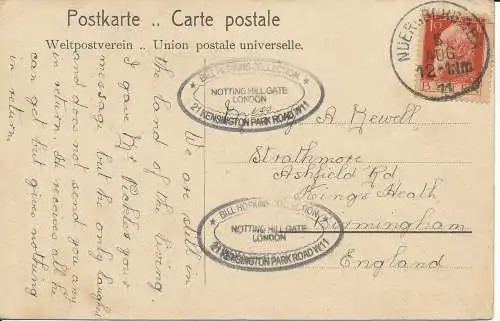 Postkarte .. Carte postale
Weltpostverein .. Union postale universelle.
We are still in
the land of the living.
I gave Mr Pickles your
message but he only laughed
and does not send you any
in return. He receives all he
can get but gives nothing
in return.
A Newell
Strathmore
Ashfield Rd
Kings Heath
Birmingham
England
BILL HOPKINS COLLECTION
NOTTING HILL GATE
LONDON
21 KENSINGTON PARK ROAD W11
BILL HOPKINS COLLECTION
NOTTING HILL GATE
LONDON
21 KENSINGTON PARK ROAD W11
12-1Nm
11
10